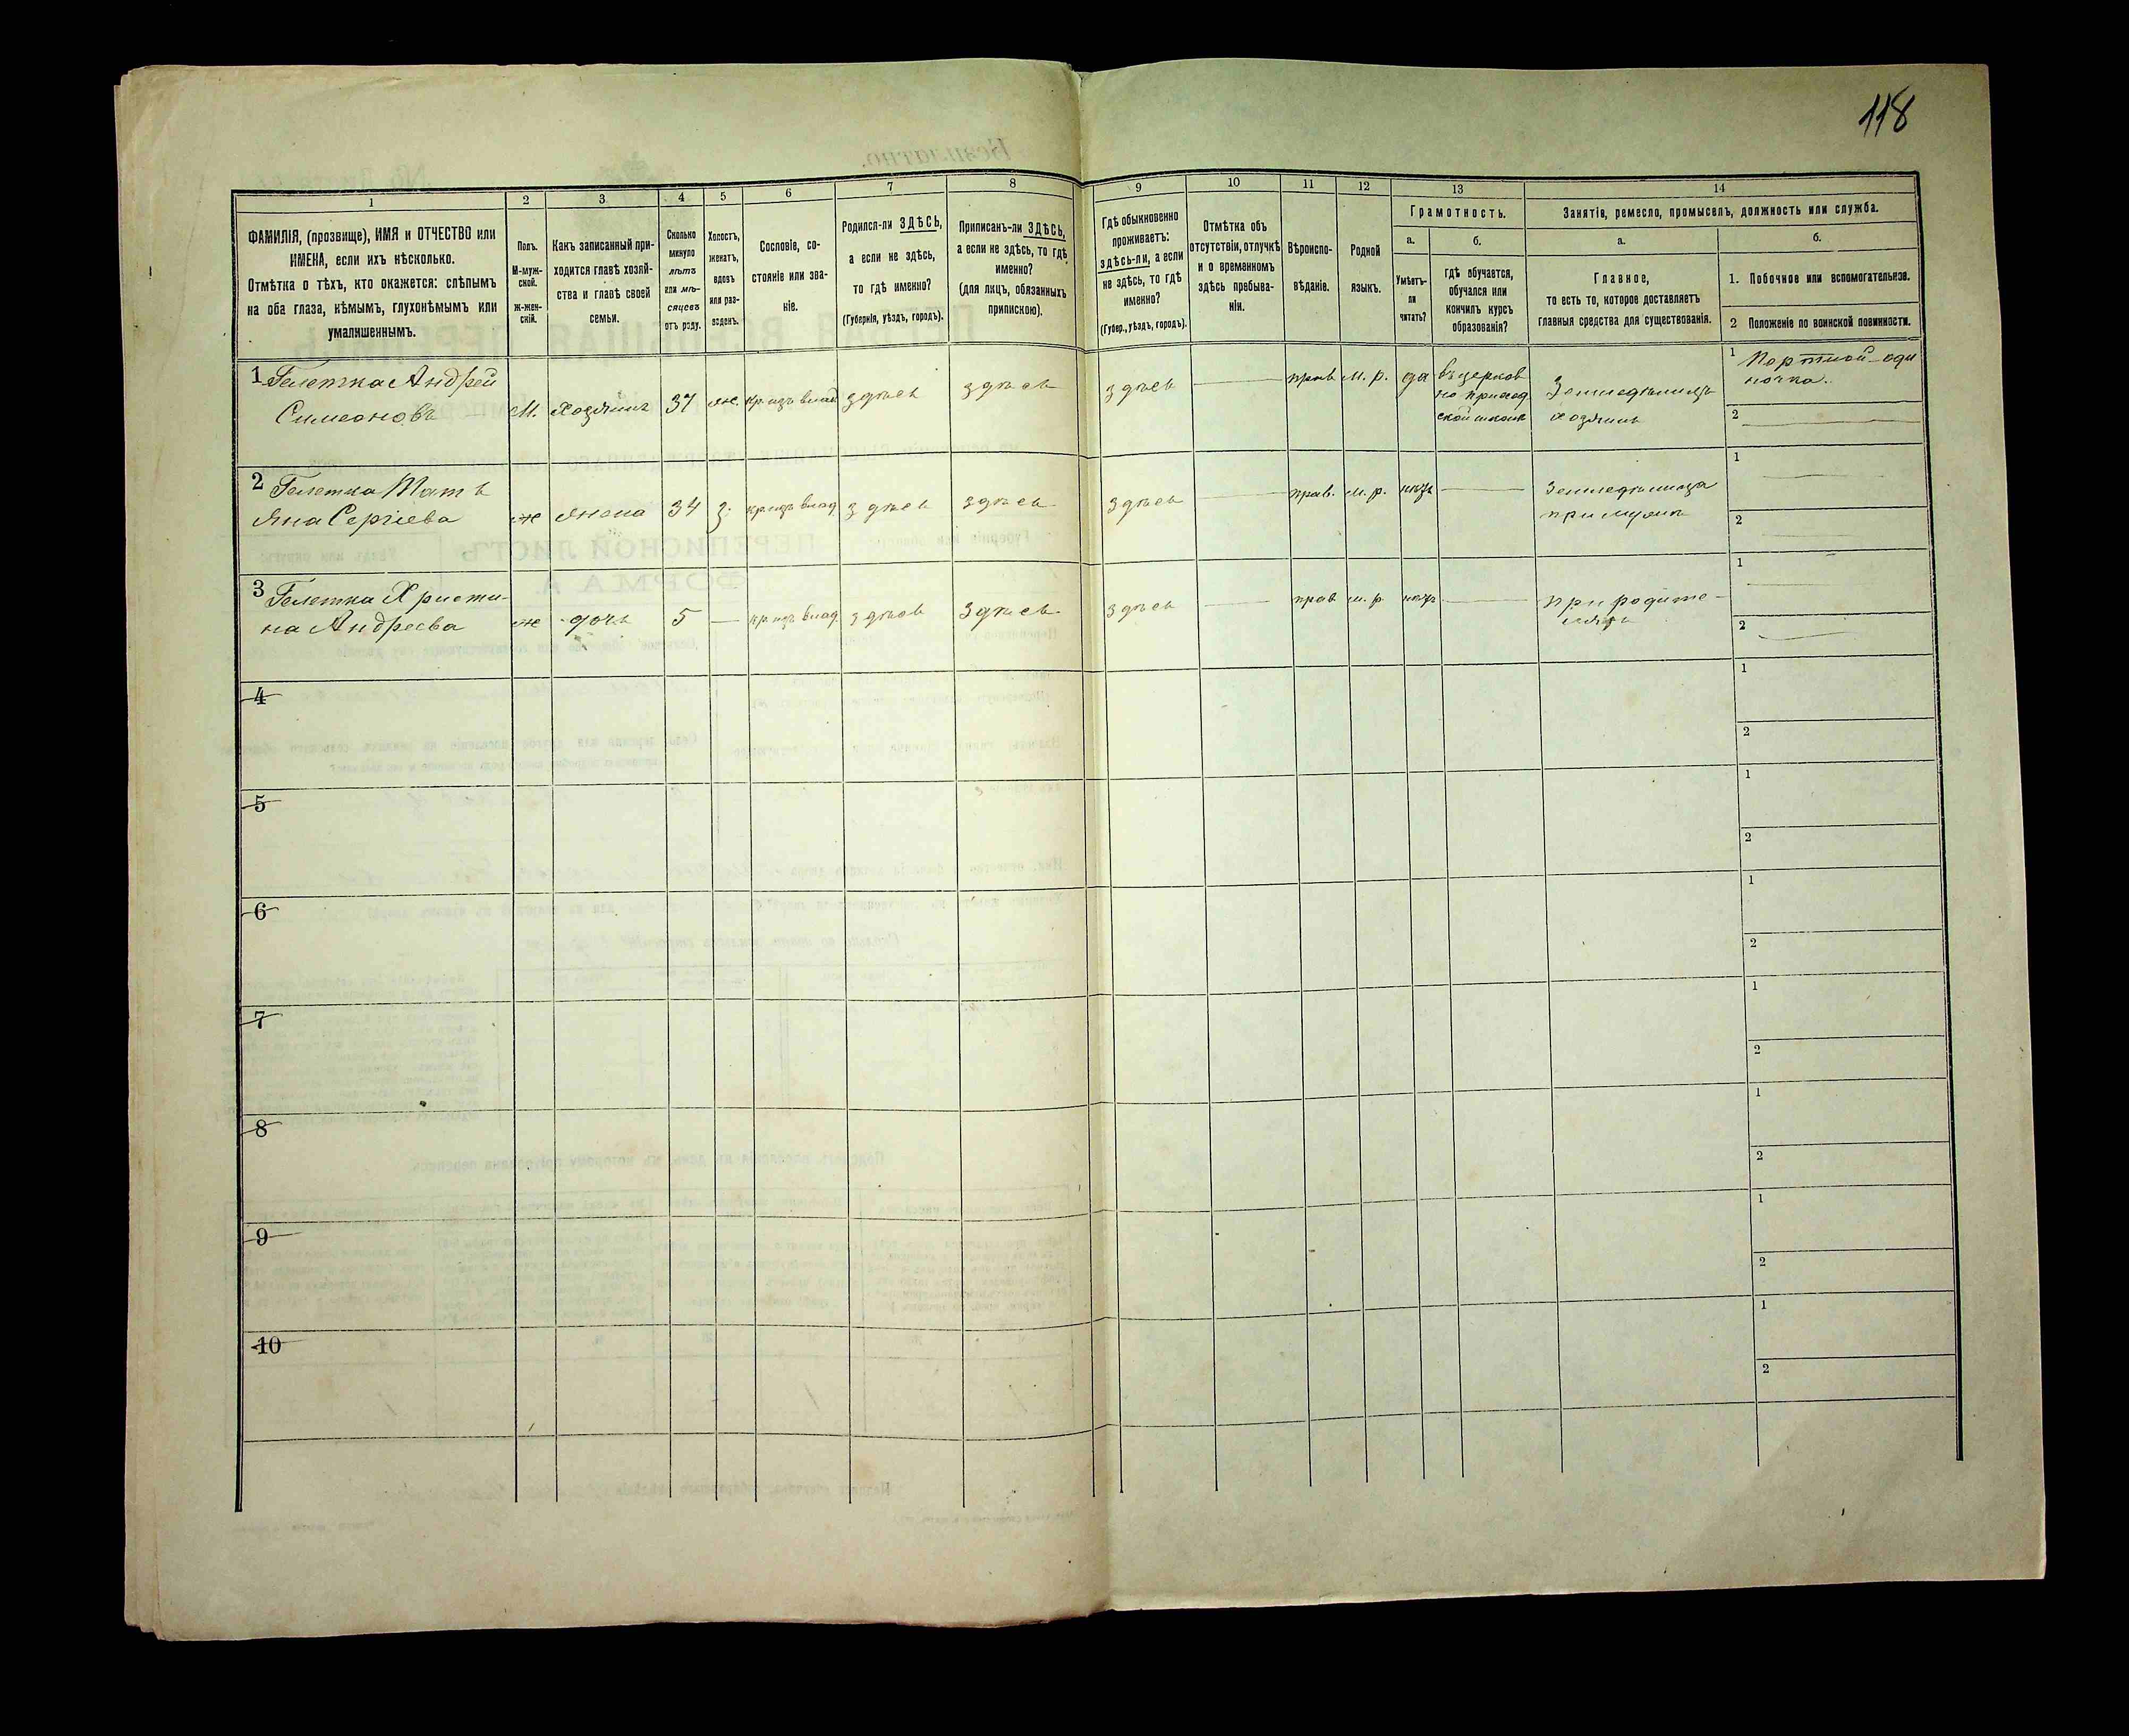 118
1
2
3
4
5
6
7
8
9
10
11
12
13
14
ФАМИЛІЯ, (прозвище), ИМЯ и ОТЧЕСТВО или
ИМЕНА, если ихъ нѣсколько.
Отмѣтка о тѣхъ, кто окажется: слѣпымъ
на оба глаза, нѣмымъ, глухонѣмымъ или
умалишеннымъ.
Полъ.
М-муж-
ской.
Ж-жен-
скій.
Какъ записанный при-
ходится главѣ хозяй-
ства и главѣ своей
семьи.
Сколько
минуло
лѣтъ
или мѣ-
сяцевъ
отъ роду.
Холостъ,
женатъ,
вдовъ
или раз-
веденъ.
Сословіе, со-
стояніе или зва-
ніе.
Родился-ли ЗДѢСЬ,
а если не здѣсь,
то гдѣ именно?
(Губернія, уѣздъ, городъ).
Приписанъ-ли ЗДѢСЬ,
а если не здѣсь, то гдѣ
именно?
(для лицъ, обязанныхъ
припискою).
Гдѣ обыкновенно
проживаетъ:
здѣсь-ли, а если
не здѣсь, то гдѣ
именно?
(Губер., уѣздъ, городъ).
Отмѣтка объ
отсутствіи, отлучкѣ
и о временномъ
здѣсь пребыва-
ніи.
Вѣроиспо-
вѣданіе.
Родной
языкъ.
Грамотность.
а.
Умѣетъ-
ли
читать?
б.
гдѣ обучается,
обучался или
кончилъ курсъ
образованія?
Занятія, ремесло, промыселъ, должность или служба.
а.
Главное,
то есть то, которое доставляетъ
главныя средства для существованія.
б.
1. Побочное или вспомогательное.
2 Положеніе по воинской повинности.
1 Гелетка Андрей
Симеоновъ
М.
Хозяинъ
37
же.
кр. изъ влад
здѣсь
здѣсь
здѣсь
прав
м. р.
да
въ церков
но приход
ской школѣ
Земледѣлецъ
хозяинъ
1 Портной - оди
ночка.
2
2 Гелетка Татъ
яна Сергіева
ж
жена
34
з.
кр изъ влад
здѣсь
здѣсь
здѣсь
прав.
м. р.
нѣтъ
Земледѣлица
при мужѣ
1
2
3 Гелетка Христи-
на Андреева
ж
дочь
5
кр изъ влад.
здѣсь
здѣсь
здѣсь
прав
м. р.
нѣтъ
при родите-
ляхъ
1
2
4
1
2
5
1
2
6
1
2
7
1
2
8
1
2
9
1
2
10
1
2